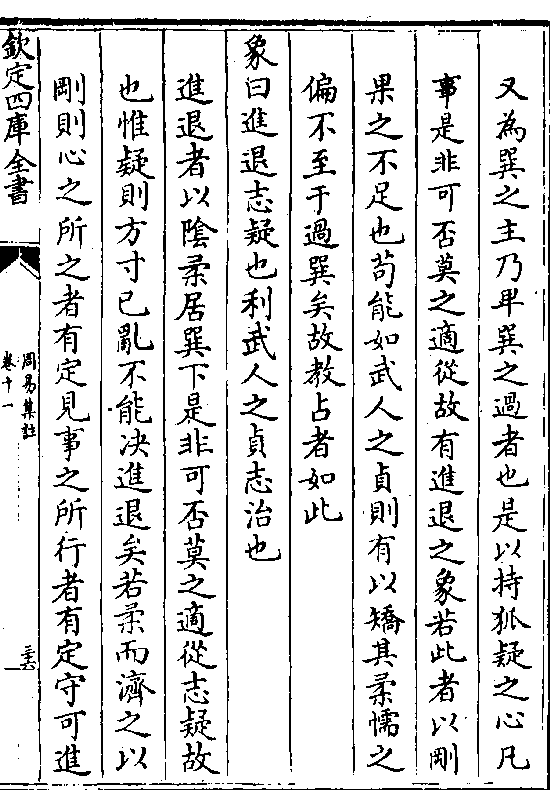 又為巽之主乃卑巽之過者也是以持狐疑之心凡
事是非可否莫之適從故有進退之象若此者以剛
果之不足也苟能如武人之貞則有以矯其柔懦之
偏不至于過巽矣故教占者如此
象曰進退志疑也利武人之貞志治也
進退者以陰柔居巽下是非可否莫之適從志疑故
也惟疑則方寸已亂不能决進退矣若柔而濟之以
剛則心之所之者有定見事之所行者有定守可進
欽定四庫全書
周易集註
卷十一
三十六